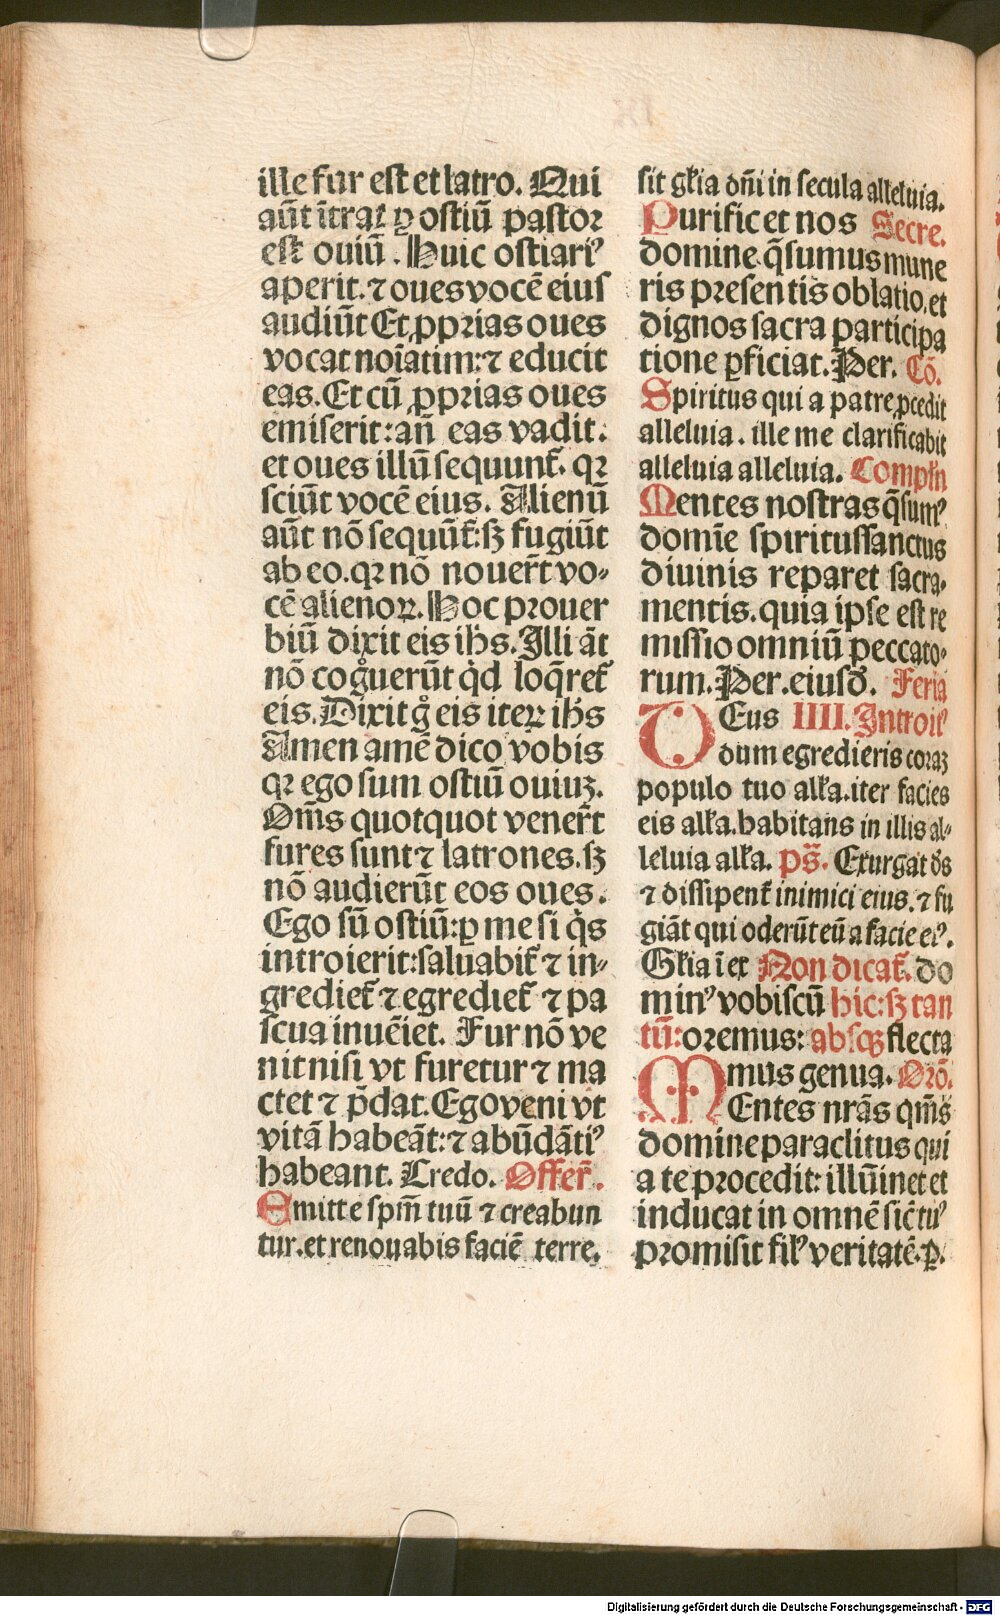 ille fur est et latro. Qui
aūt ītrat ꝑ ostiū pastor
est ouiū. Huic ostiariꝰ
aperit. ⁊ oues vocē eius
audiūt Et ꝓprias oues
vocat noīatim: ⁊ educit
eas. Et cū ꝓprias oues
emiserit: an̄ eas vadit:
et oues illū sequunt᷑. qꝛ
sciūt vocē eius. Alienū
aūt nō sequūt᷑: sꝫ fugiūt
ab eo. qꝛ nō nouer̄t vo-
cē alienoꝝ. Hoc prouer
biū dixit eis ih̄s. Illi āt
nō cogͦuerūt qͥd loq̄ret᷑
eis. Dixit gͦ eis iteꝝ ih̄s
Amen amē dico vobis
qꝛ ego sum ostiū ouiuꝫ.
Om̄s quotquot vener̄t
fures sunt ⁊ latrones. sꝫ
nō audierūt eos oues.
Ego sū ostiū: ꝑ me si qͥs
introierit: saluabit᷑ ⁊ in-
grediet᷑ ⁊ egrediet᷑ ⁊ pa
scua inuēiet. Fur nō ve
nit nisi vt furetur ⁊ ma
ctet ⁊ ꝑdat. Ego veni vt
vitā habeāt: ⁊ abūdātiꝰ
habeant. Credo. Offer̄.
Emitte spm̄ tuū ⁊ creabun
tur. et renouabis faciē terre.
sit gl'ia dn̄i in secula alleluia.
Purificet nos Secre.
domine q̄sumus mune
ris presentis oblatio. et
dignos sacra participa
tione ꝑficiat. Per. Cō.
Spiritus qui a patre ꝓcedit
alleluia. ille me clarificabit
alleluia alleluia. Compl'n
Mentes nostras q̄sumꝰ
domīe spiritussanctus
diuinis reparet sacra-
mentis. quia ipse est re
missio omniū peccato-
rum. Per. eiusd̄. Feria
DEus IIII. Introitꝰ
dum egredieris coraꝫ
populo tuo all'a. iter facies
eis all'a. habitans in illis al-
leluia all'a. ps̄. Exurgat d̄s
⁊ dissipent᷑ inimici eius. ⁊ fu
giāt qui oderūt eū a facie eiꝰ.
Gl'ia ī ex Non dicat᷑. do
minꝰ vobiscū hic: sꝫ tan
tū: oremus: absqꝫ flecta
mus genua. Orō.
MEntes nrās qm̄s
domine paraclitus qui
a te procedit: illūinet et
inducat in omnē sic̄ tuꝰ
promisit filꝰ veritatē. ꝑ.
Digitalisierung gefördert durch die Deutsche Forschungsgemeinschaft - DFG